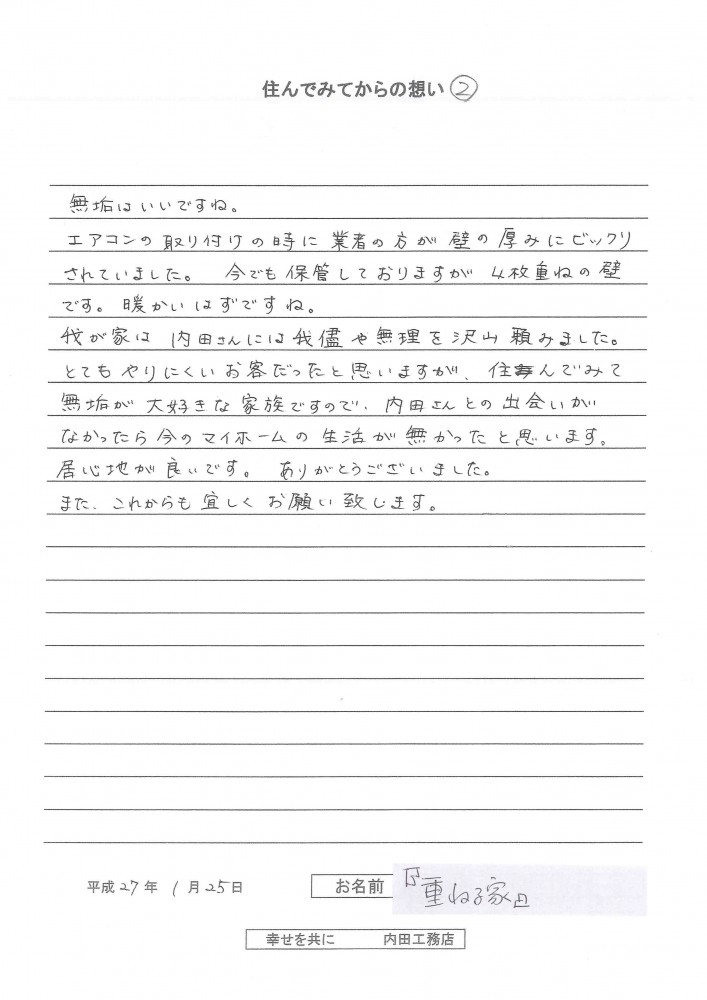 住んでみてからの想い②
無垢はいいですね。
エアコンの取り付けの時に業者の方が壁の厚みにビックリ
されていました。 今でも保管しておりますが4枚重ねの壁
です。暖かいはずですね。
我が家は 内田さんには我儘や無理を沢山頼みました。
とてもやりにくいお客だったと思いますが、住んでみて
無垢が大好きな家族ですので、内田さんとの出会いが
なかったら今のマイホームの生活が無かったと思います。
居心地が良いです。 ありがとうございました。
また、これからも宜しくお願い致します。
平成27年 1月25日 お名前 『重ねる家』
幸せを共に 内田工務店